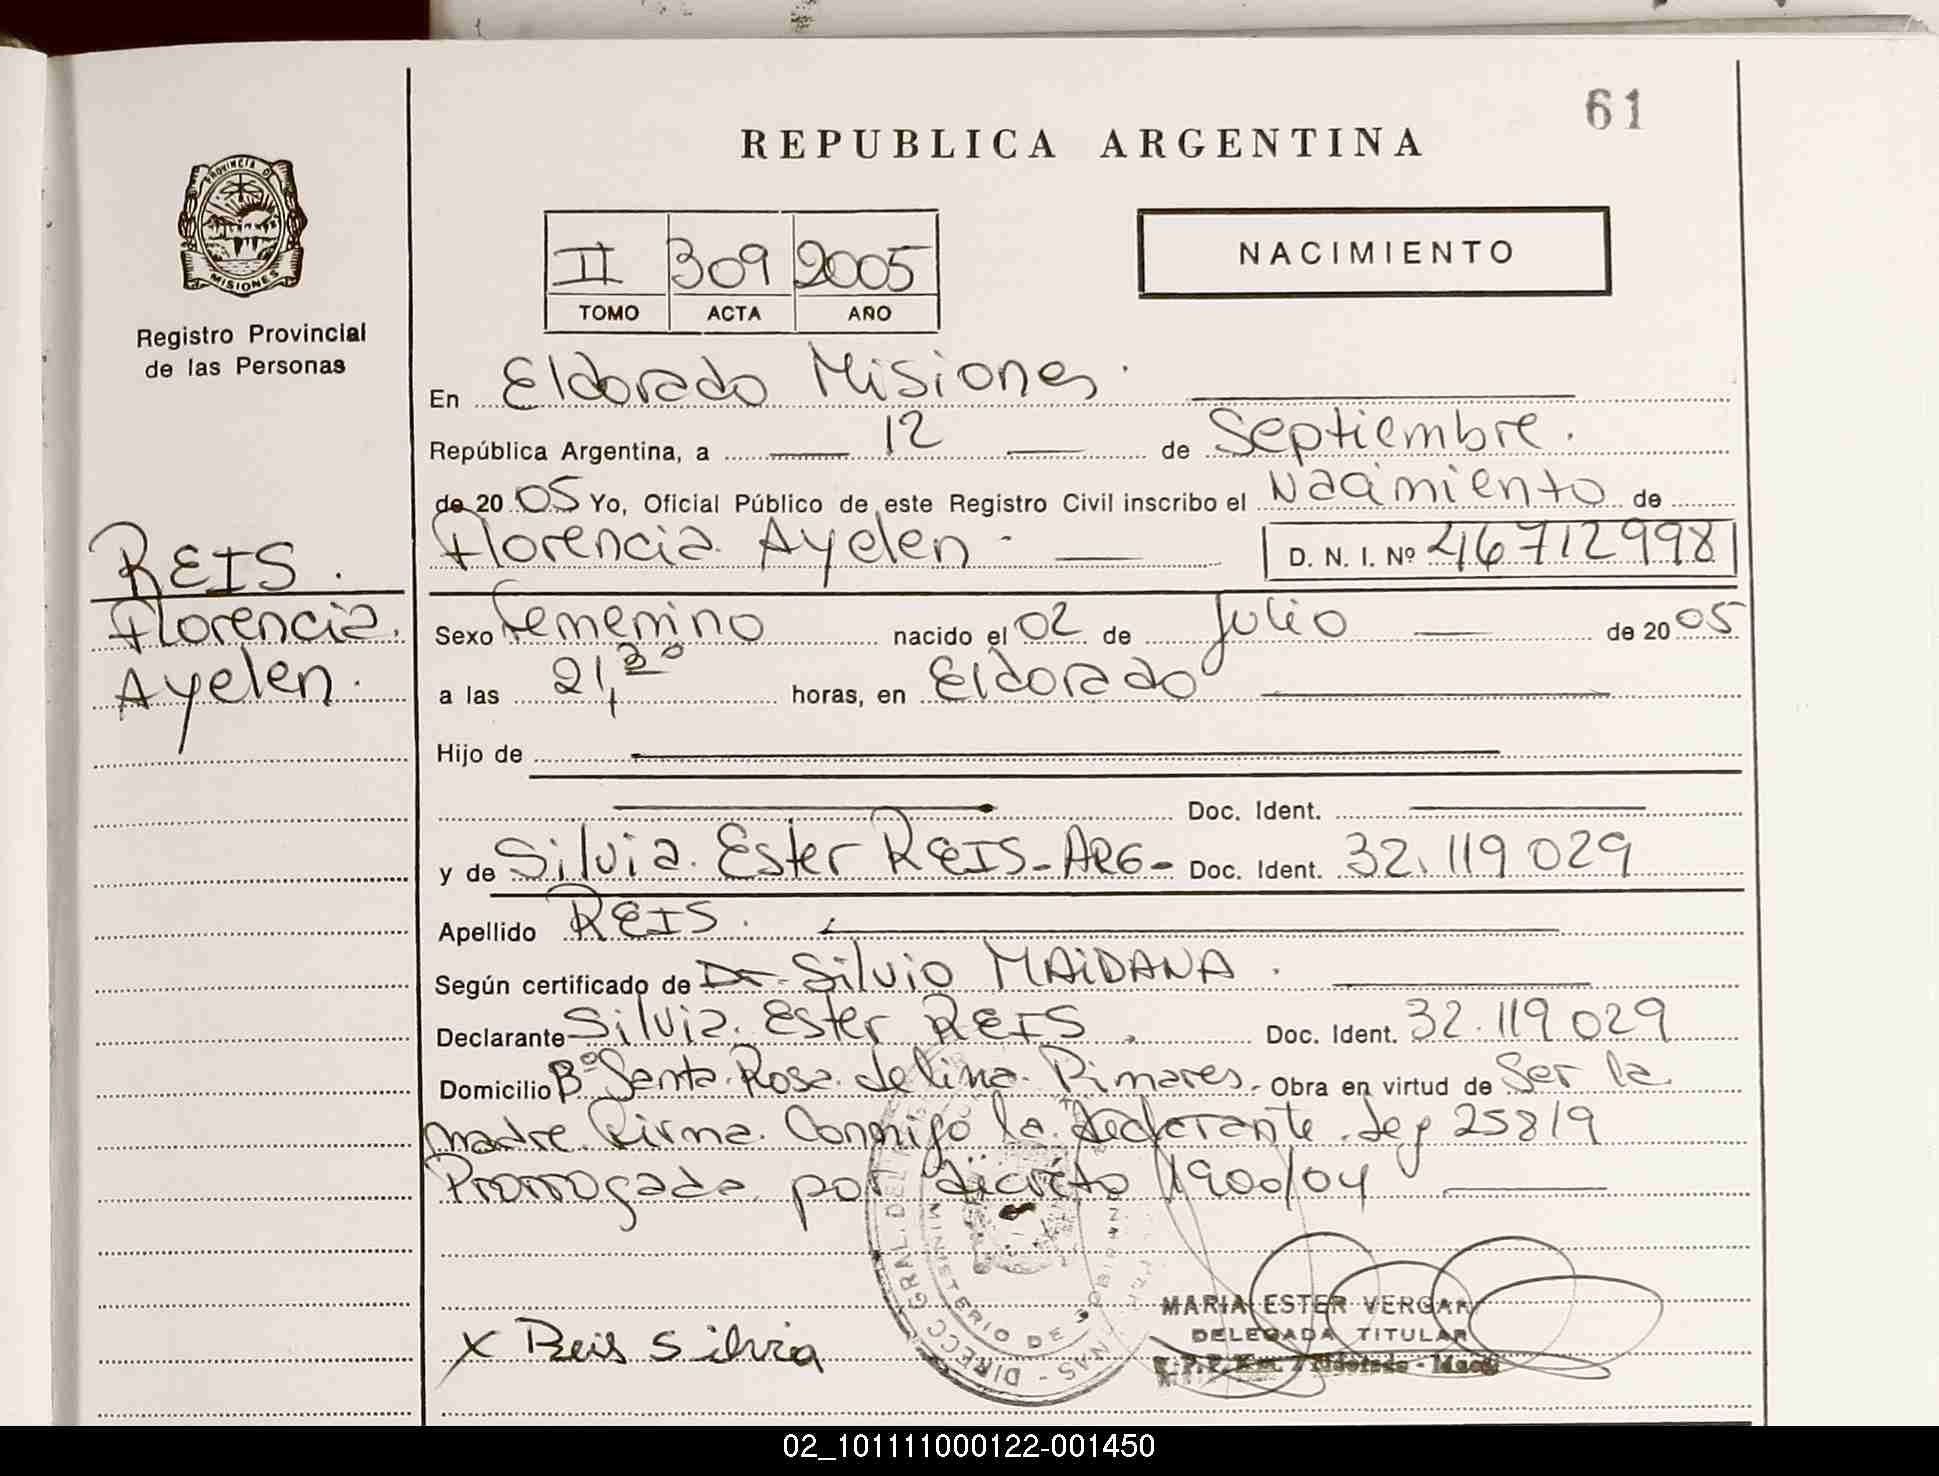 61
REPUBLICA ARGENTINA
PROVINCIA DE MISIONES
Registro Provincial
de las Personas
II 309 2005
TOMO ACTA AÑO
NACIMIENTO
En Eldorado Misiones.
República Argentina, a 12 de Septiembre.
de 20 05 Yo, Oficial Público de este Registro Civil inscribo el Nacimiento de
Florencia Ayelen - D. N. I. Nº 46712998
REIS.
Florencia.
Ayelen.
Sexo Femenino nacido el 02 de Julio de 20 05
a las 21,30 horas, en Eldorado
Hijo de
Doc. Ident.
y de Silvia Ester REIS - ARG - Doc. Ident. 32.119 029
Apellido REIS.
Según certificado de Dr. Silvio MAIDANA.
Declarante Silvia Ester REIS. Doc. Ident. 32.119 029
Domicilio Bº Santa Rosa de Lima Pinares. Obra en virtud de Ser la
madre Firma Conmigo la declarante. Ley 25819
Prorrogada por decreto 1900/04
DIRECC. GRAL. DEL
MINISTERIO DE GOBIERNO
X Reis Silvia
MARIA ESTER VERGARA
DELEGADA TITULAR
02_101111000122-001450